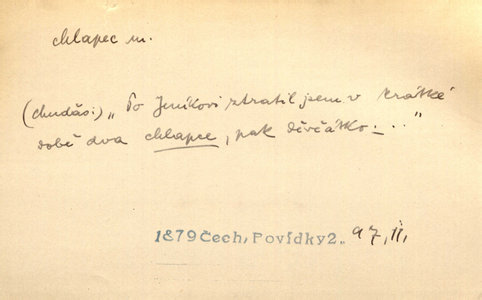 chlapec m.
(chudás:) „Po Jeníkovi ztratil jsem v krátké
době dva chlapce, pak děvčátko..."
1879 Čech, Povídky 2„ 97, II,